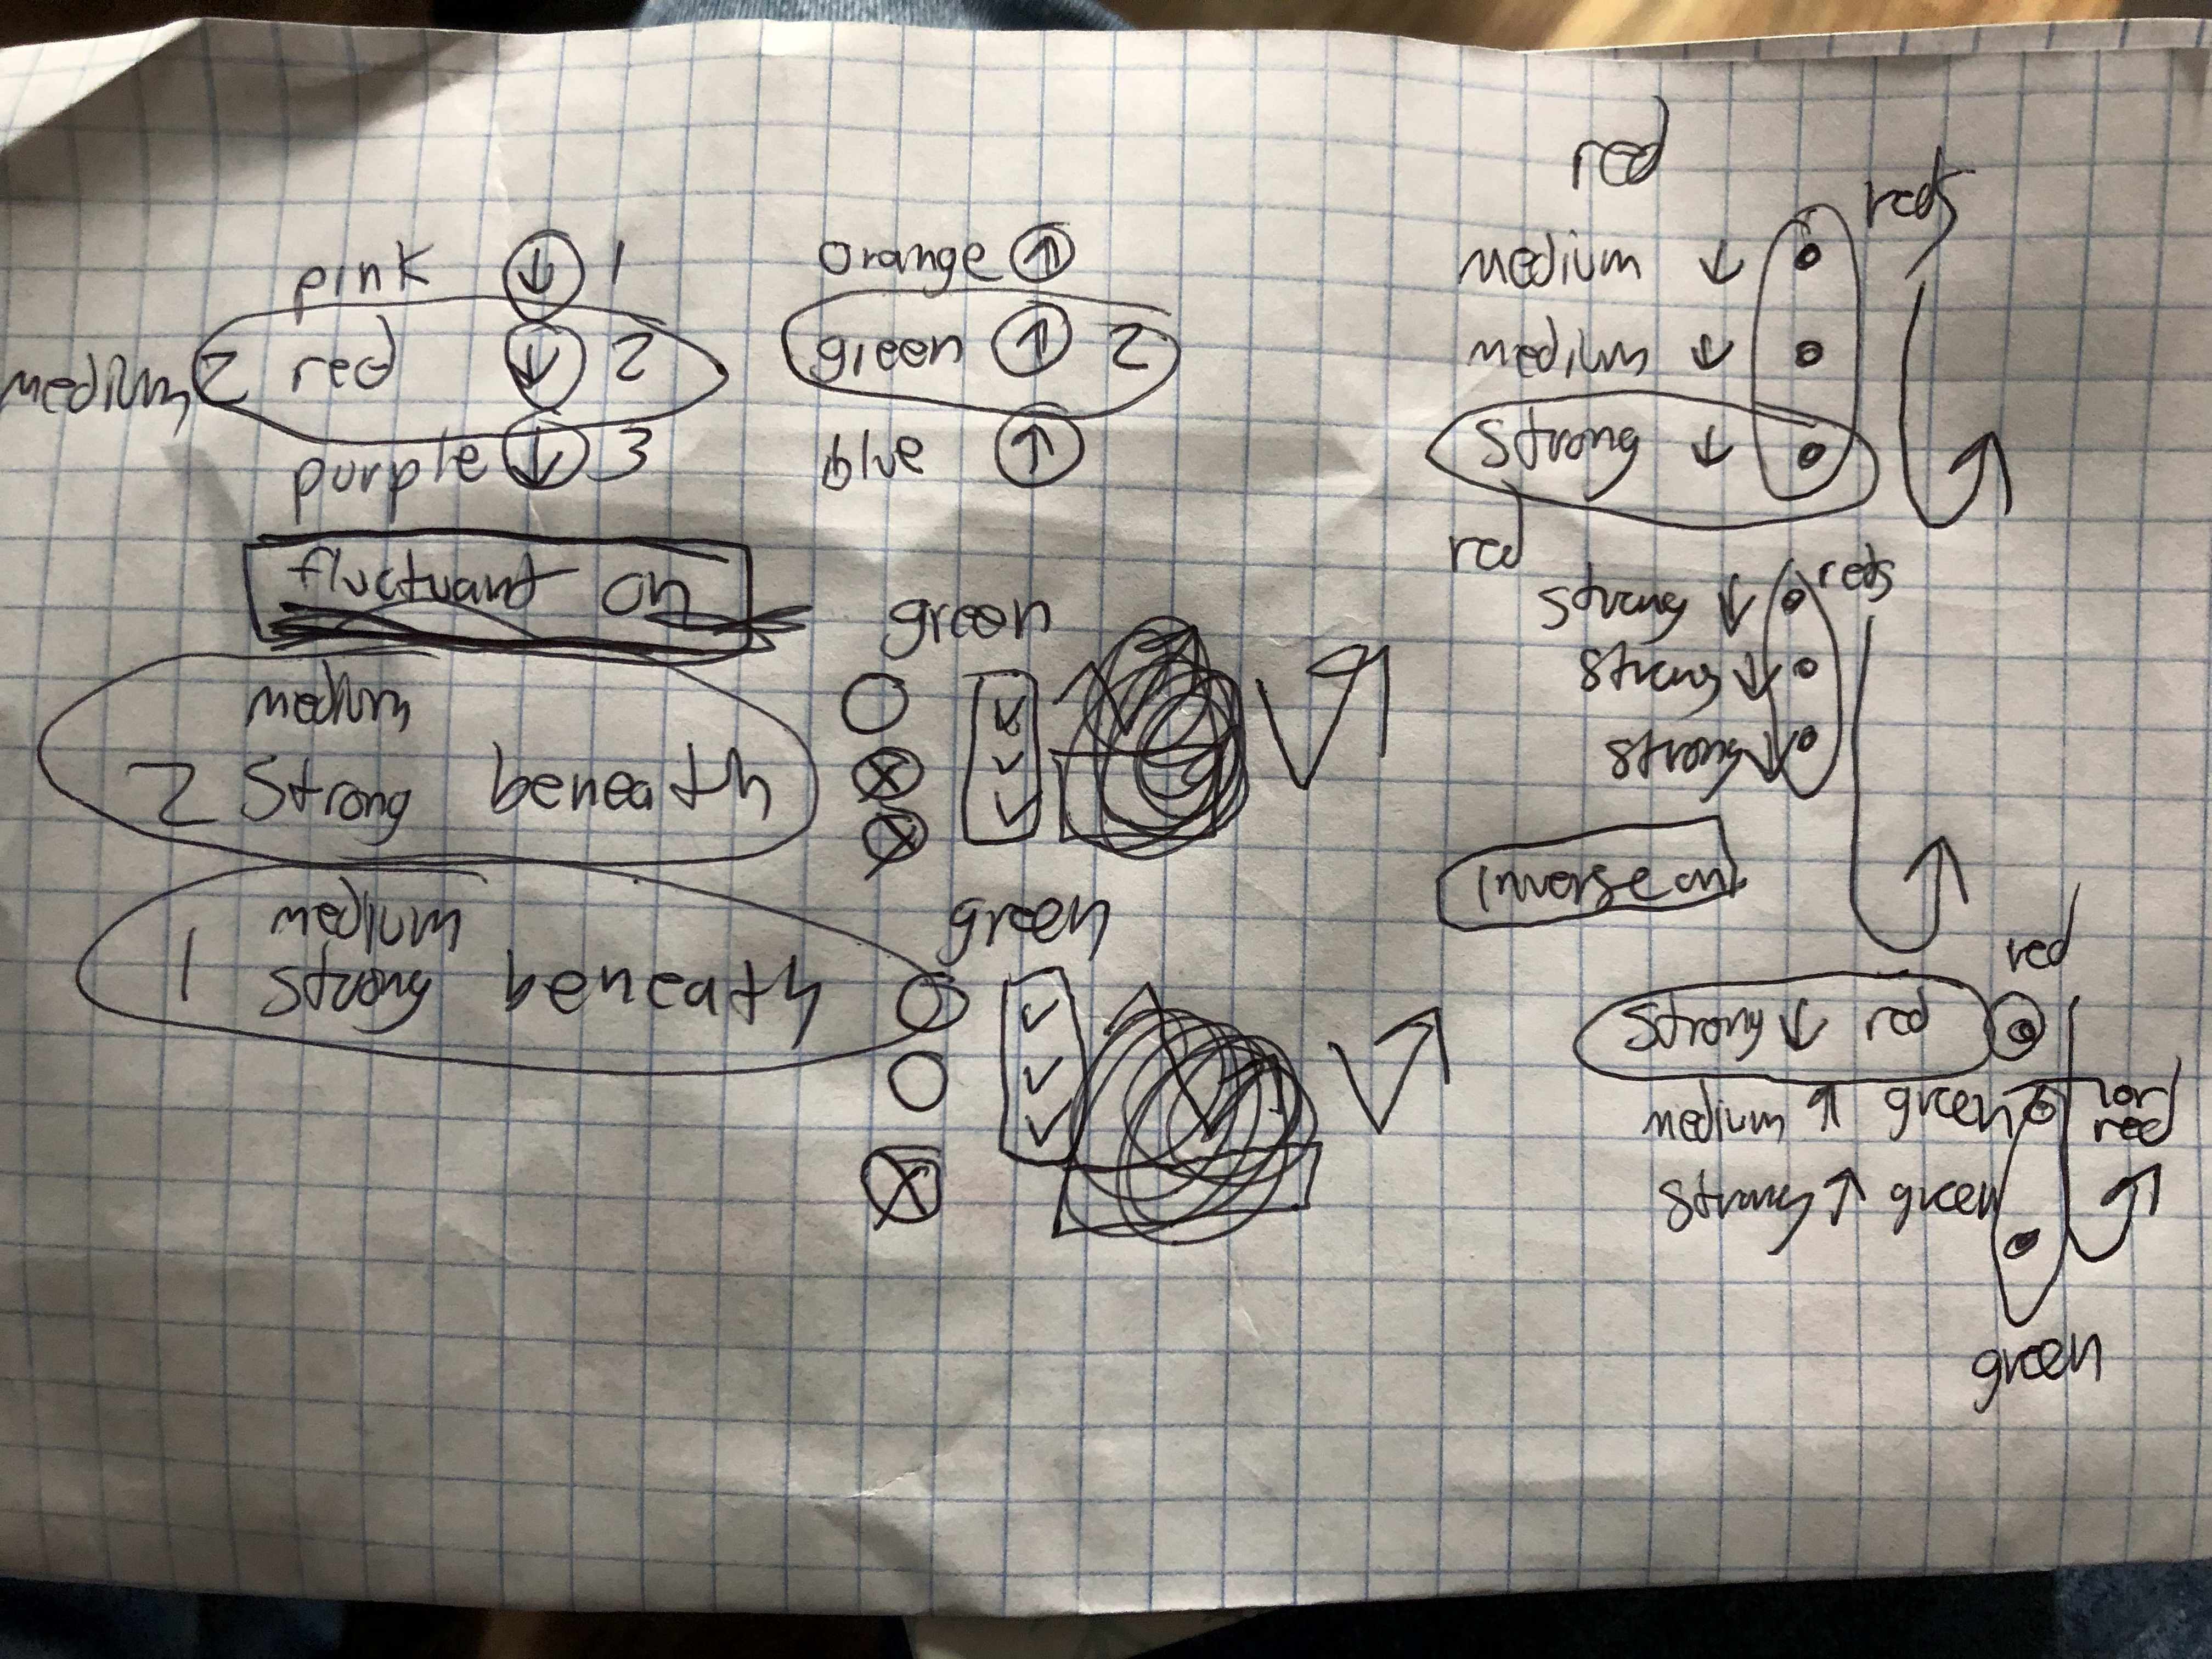 pink ↓ 1
medium 2 red ↓ 2
purple ↓ 3
orange ↑
green ↑ 2
blue ↑
fluctuant on
medium
2 strong beneath
green
medium
1 strong beneath
green
red
reds
medium ↓
medium ↓
strong ↓
red
reds
strong ↓
strong ↓
strong ↓
inverse on
red
strong ↓ red
medium ↑ green
1 or
red
strong ↑ green
green